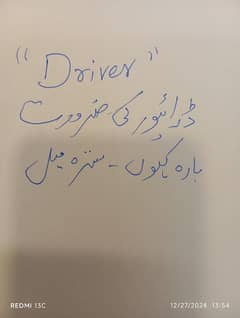 "Driver"
ڈرائیور کی ضرورت
بارہ کہوں - سترہ میل
REDMI 13C
12/27/2024 13:54